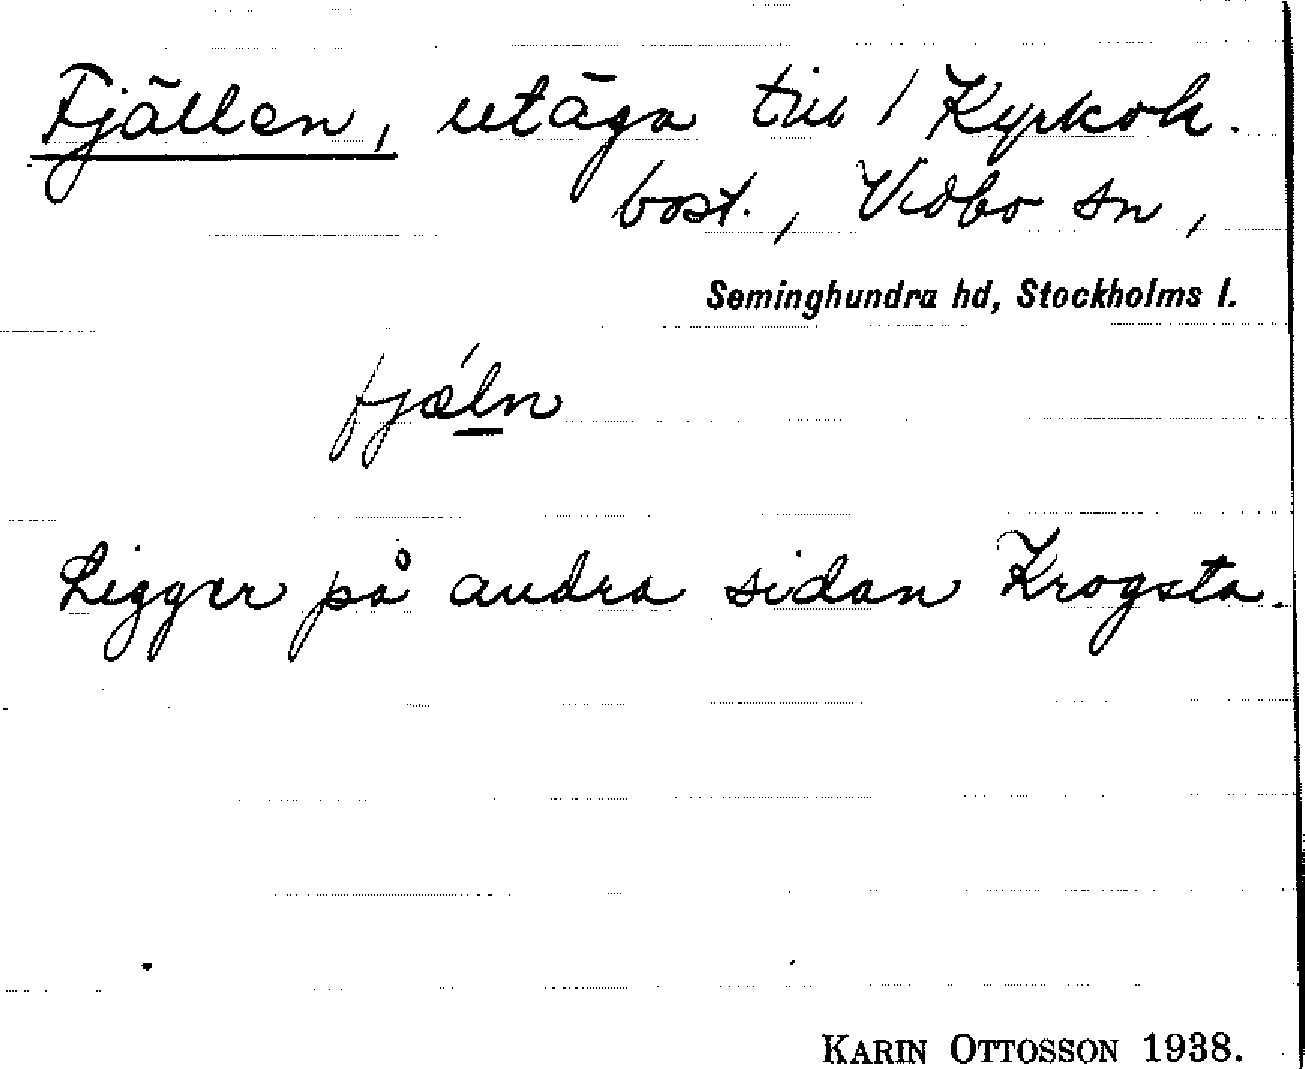 Fjällen, utäga till / Kyrkoh.
bost., Vidbo sn,
Seminghundra hd, Stockholms l.
fjǽln
Ligger på andra sidan Krogsta.
KARIN OTTOSSON 1938.